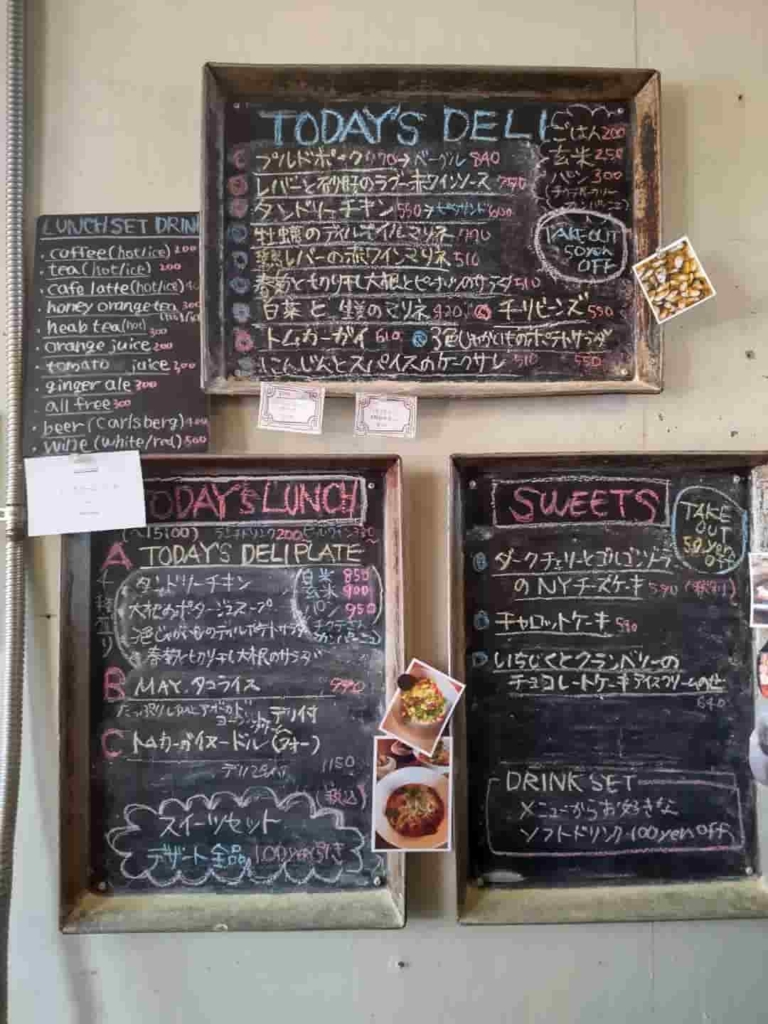 TODAY'S DELI
プルドポーク 770→ベーグル 840
レバーと砂肝のラグー赤ワインソース 750
タンドリーチキン 550→
牡蠣のディルオイルマリネ 790
鶏レバーの赤ワインマリネ 510
春菊ともの切干し大根とピーナッツのサラダ 510
白菜と生姜のマリネ 420 チーリビーンズ 550
トムカーガイ 610 3色じゃがいものポテトサラダ 550
にんじんとスパイスのケークサレ 510
ごはん 200
玄米 250
パン 300
TAKE OUT
50yen
OFF
LUNCH SET DRIN
・coffee (hot/ice) 200
・tea (hot/ice) 200
・cafe latte (hot/ice)
・honey orange tea 300
・heab tea (hot) 300
・orange juice 200
・tomato juice 300
・ginger ale 300
・all free 300
・beer (carlsberg)
・wine (white/red) 500
ODAY'S LUNCH
(~15:00)
A TODAY'S DELI PLATE
タンドリーチキン
大根のポタージュスープ
3色じゃがいものディルポテトサラダ
春菊と切り干し大根のサラダ
白米 850
玄米 900
パン 950
B MAY. タコライス 990
デリ付
C トムカーガイヌードル (フォー)
1150
(税込)
スイーツセット
デザート全品 100yen引き
SWEETS
TAKE
OUT
50yen
OFF
ダークチェリーとゴルゴンゾーラ
のNYチーズケーキ 590
キャロットケーキ 590
いちじくとクランベリーの
チョコレートケーキ アイスクリームのせ
640
DRINK SET
メニューからお好きな
ソフトドリンク 100yen off